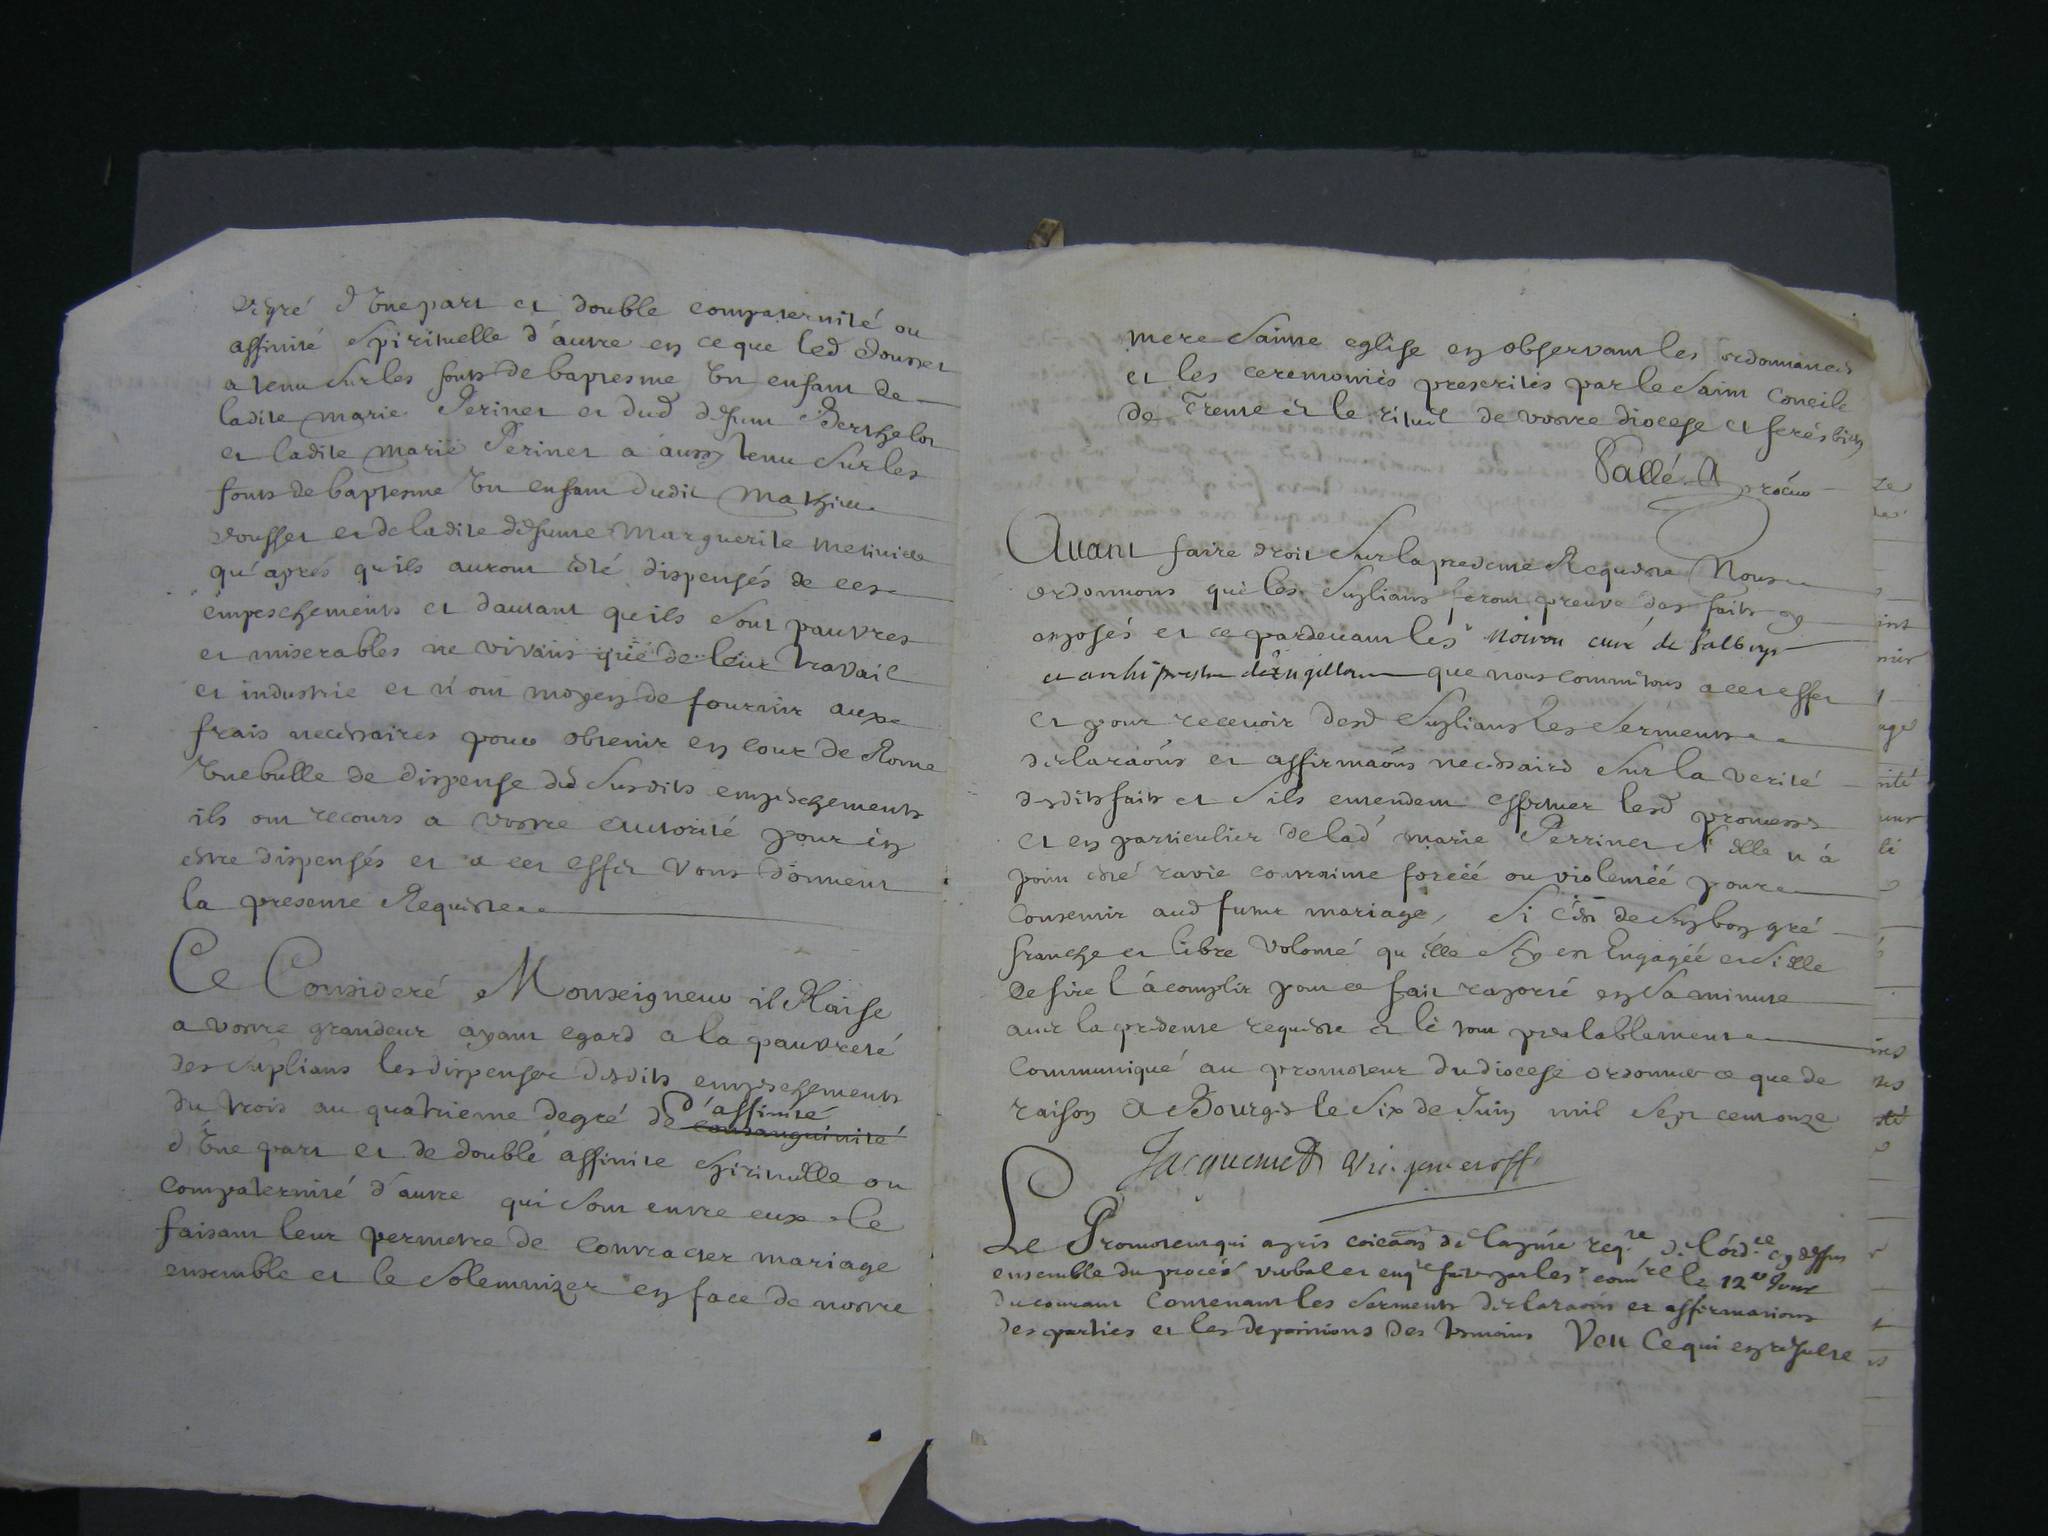 degré d'Une part et double compaternité ou
affinité spirituelle d'autre en ce que led Dousset
a tenu sur les fonts de baptesme Un enfant de
ladite marie Perinet et dud defunt Berthelot
et ladite marie Perinet a aussy tenu sur les
fonts de baptesme Un enfant dudit Mathieu
Dousset et de ladite defunte Marguerite
qu'aprés qu'ils auront esté dispensés de ces
empeschements et dautant qu'ils sont pauvres
et miserables ne vivants que de leur travail
et industrie et n'ont moyen de fournir aux
frais necessaires pour obtenir en cour de Rome
Une bulle de dispense des susdits empeschements
ils ont recours a vostre autorité pour en
estre dispensés et a cet effet vous donnent
la presente Requeste
Ce Consideré Monseigneur il Plaise
a vostre grandeur ayant egard a la pauvreté
des suplians les dispenser desdits empeschements
du trois au quatrieme degré de d'affinité consanguinité
d'Une part et de double affinite spirituelle ou
compaternité d'autre qui sont entre eux ce
faisant leur permetre de contracter mariage
ensemble et le solemnizer en face de nostre
mere sainte eglise en observant les ordonnances
et les ceremonies prescrites par le saint concile
de Trente et le rituel de vostre diocese et ferés bien
Pallé
Avant faire droit sur la presente Requeste Nous
ordonnons que les suplians feront preuve des faits cy
exposés et ce pardevant le sr Moirou curé de salbrys
et archiprestre que nous commetons a cet effet
et pour recevoir desd suplians les serments
declaraons et affirmaons necessaires sur la verité
desdits faits et s'ils entendent effectuer lesd promesses
et en particulier de lad marie Perrinet si elle n'a
point esté ravie contrainte forcéé ou violentéé pour
consentir aud futur mariage, si c'est de son bon gré
franche et libre volonté qu'elle s'y est Engagéé et si elle
desire l'acomplir pour ce fait raporté en sa minute
avec la presente requeste et le tout prealablement
communiqué au promoteur du diocese ordonner ce que de
raison a Bourges le six de Juin mil sept cent onze
Jacquemet vic. gen. et off.
Le Promoteur qui a pris coicaon de la pnte reqte de l'ordce cy dessus
ensemble du procés verbal et enqte fait par le sr comre le 12e Juin
du courant contenant les serments declaraons et affirmations
des parties et les depositions des tesmoins Veu Ce qui en resulte